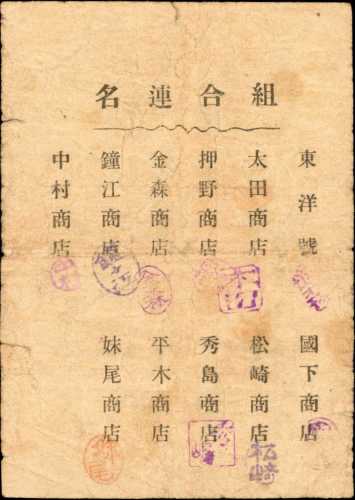 組合連名
東洋號
太田商店
押野商店
金森商店
鐘江商店
中村商店
國下商店
松崎商店
秀島商店
平木商店
妹尾商店
松崎
妹尾